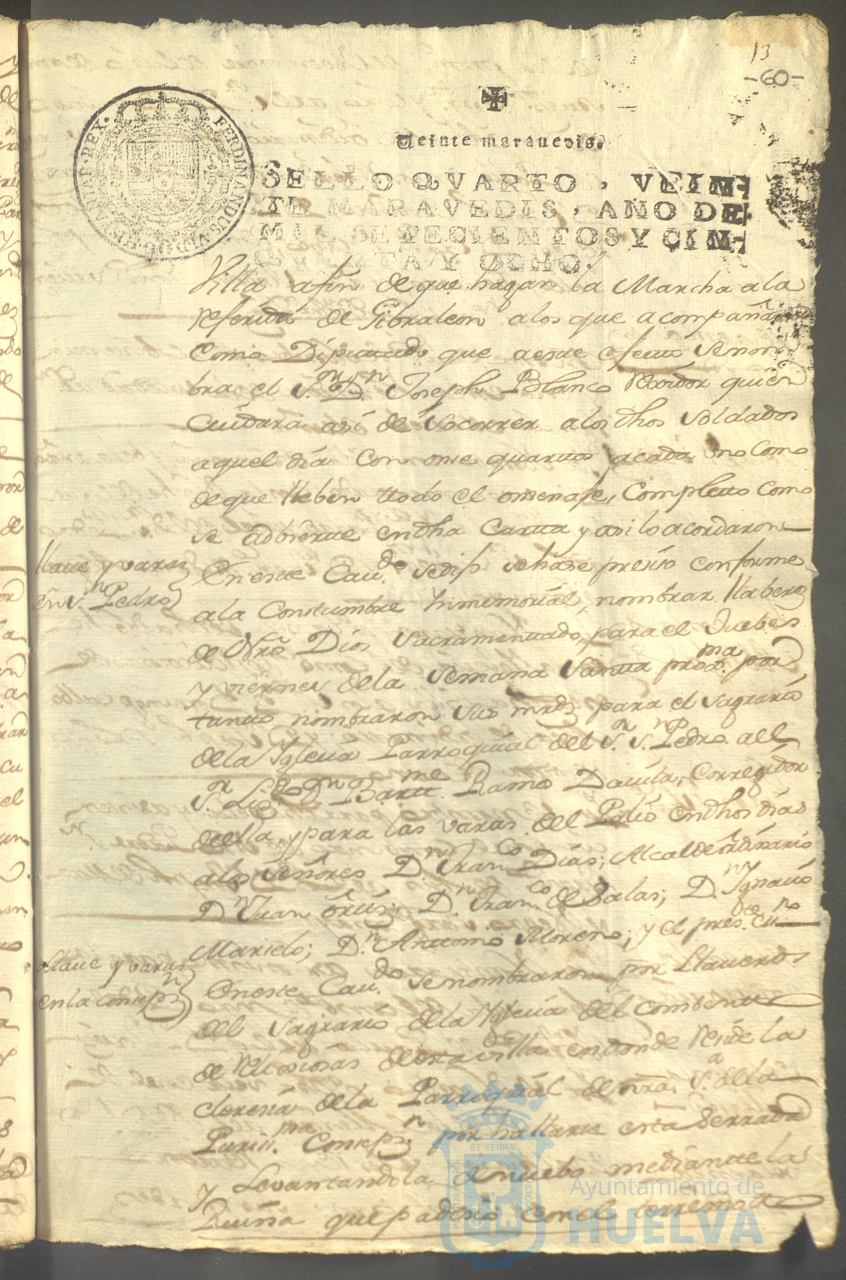 13
-68-
FERDINANDUS·VI·D·G·HISPANIAR·REX·
Veinte maravedis.
SELLO QVARTO, VEIN-
TE MARAVEDIS, AÑO DE
MIL SETECIENTOS Y CIN-
QVENTA Y OCHO.
Villa afin de que hagan la Marcha ala
referida de Gibraleon alos que acompañara
Como Diputado que aeste efecto Senom-
bra el Sr. Dn. Joseph Polanco rexidor quien
Cuidara asi de Socorrer alos dhos Soldados
aquel dia Con onse quartos acada uno Como
de que lleben ttodo el omenaje, Completo Como
se adbierte endha Carta y asi lo acordaron
Llaue y varas
en Sn. Pedro
En este Caudo. sedijo sehase presiso conforme
ala Constumbre Inmemorial, nombrar llabero
de Ntro Dios Sacramentado para el Juebes
y viernes dela Semana Santta proxma. por
tanto nombraron Sus mrds para el sagrario
dela Iglecia Parroquial del Sr. Sn. Pedro all
Sr. Lizdo Dn. Bartme. Ramos Davila, Corregidor
della y para las varas del Palio endhos dias
alos Señores Dn. Franco Dias, Alcalde ordinario
Dn. Juan Ortis; Dn. Franco. de Salas; Dn. Ignacio
Marielo; Dn. Antonio Moreno; y el presste. eno.
Llaue y varas
en la consepn
En este Caudo. Se nombraron por Llaueros
del Sagrario dela Iglecia del Combento
de Relixiosas de esta villa en donde Reside la
Cleresia de la Parroquial de nra. Sa. dela
Puriss.ma Consepn por hallarse esta Serrada
y Levantandola de nuebo mediante la
Ruina que padesio Con el terremoto
ET TERRÆ
Ayuntamiento de
HUELVA